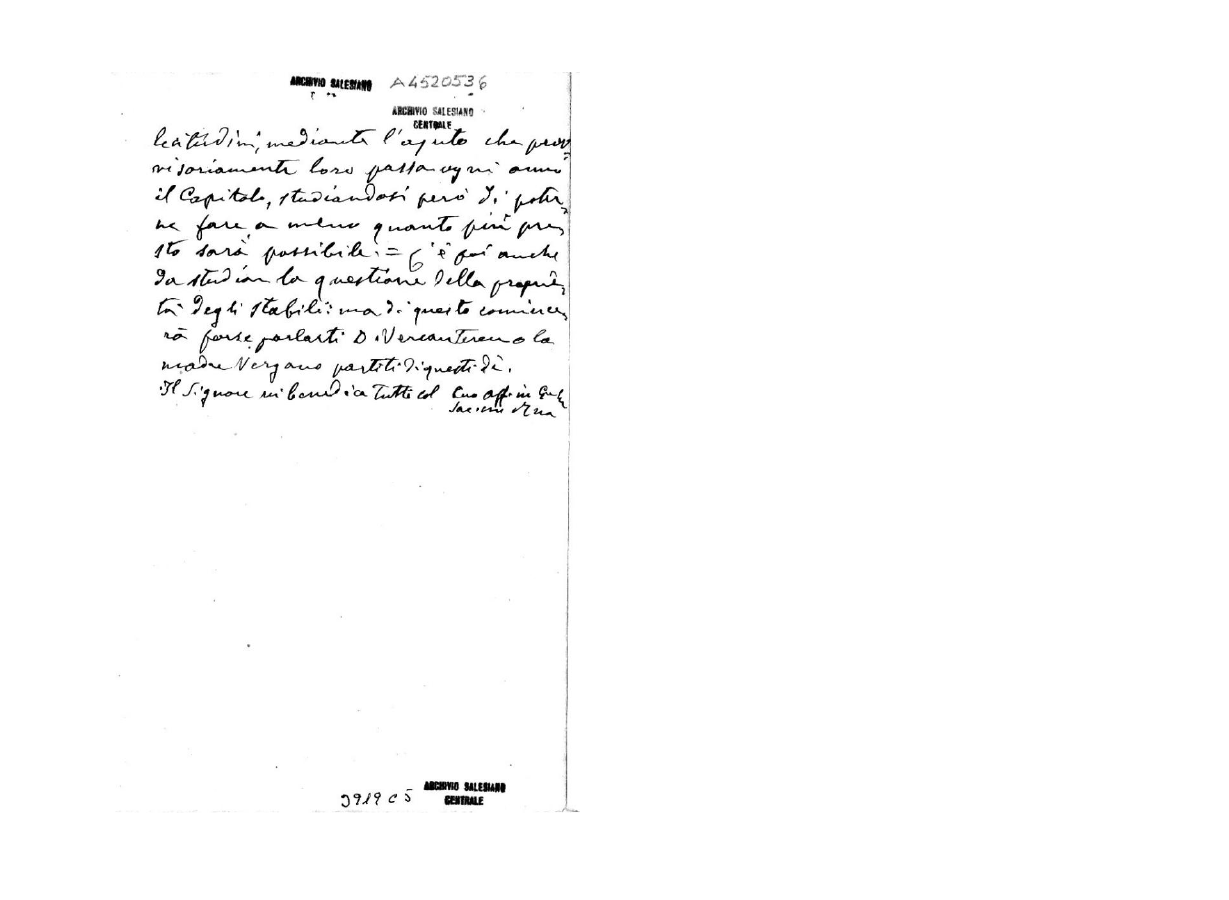 ARCHIVIO SALESIANO A4520536
ARCHIVIO SALESIANO
CENTRALE
mediante l'ajuto che prov
visoriamente loro passa ogni anno
il Capitolo, studiandosi però di poter
ne fare a meno quanto più pre
sto sarà possibile. = C'è poi anche
da studiar la questione della proprie
tà degli stabili: ma di questo comince
rà forse parlarti D. Vercauteren o la
madre Vergano partiti di questi dì.
Il Signore vi benedica tutti col tuo aff.mo in G. e M.
Sac. Rua
3919 C 5 ARCHIVIO SALESIANO
CENTRALE